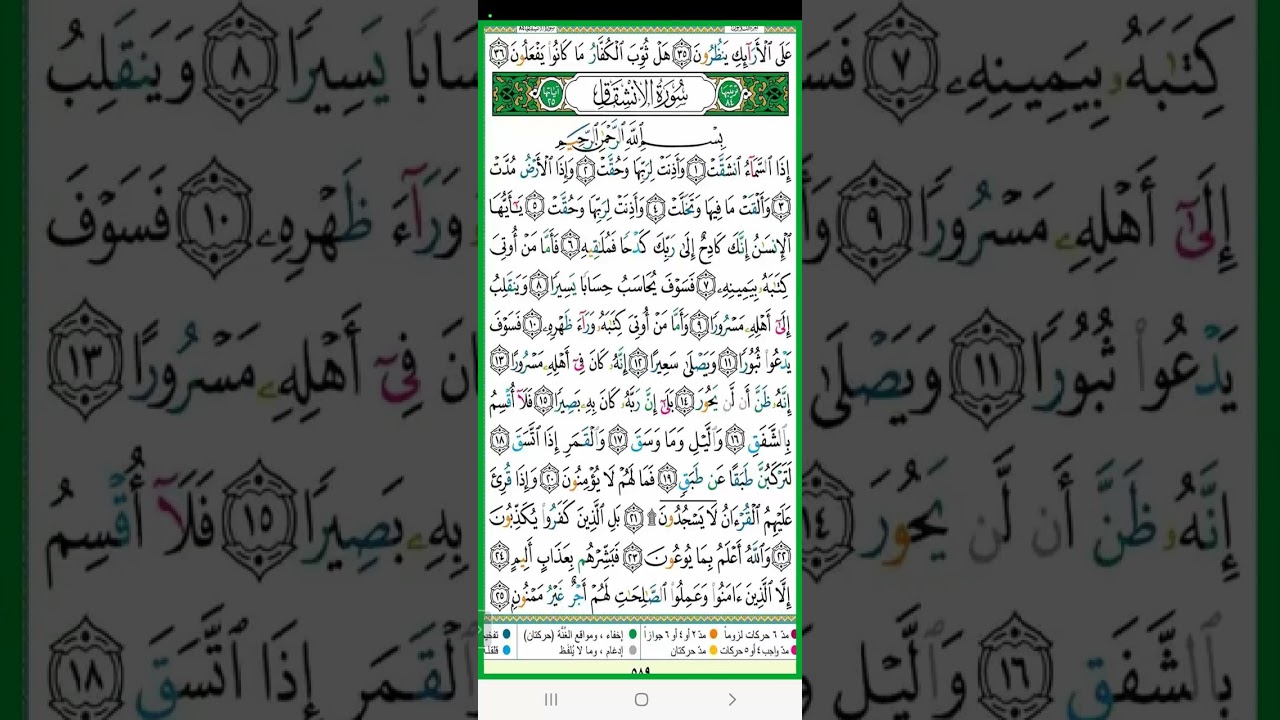 عَلَى ٱلْأَرَآئِكِ يَنظُرُونَ ٣٥ هَلْ ثُوِّبَ ٱلْكُفَّارُ مَا كَانُوا۟ يَفْعَلُونَ ٣٦
تَرْتِيبُهَا ٨٤ سُورَةُ الِانْشِقَاقِ آيَاتُهَا ٢٥
بِسْمِ ٱللَّهِ ٱلرَّحْمَٰنِ ٱلرَّحِيمِ
إِذَا ٱلسَّمَآءُ ٱنشَقَّتْ ١ وَأَذِنَتْ لِرَبِّهَا وَحُقَّتْ ٢ وَإِذَا ٱلْأَرْضُ مُدَّتْ
٣ وَأَلْقَتْ مَا فِيهَا وَتَخَلَّتْ ٤ وَأَذِنَتْ لِرَبِّهَا وَحُقَّتْ ٥ يَٰٓأَيُّهَا
ٱلْإِنسَٰنُ إِنَّكَ كَادِحٌ إِلَىٰ رَبِّكَ كَدْحًا فَمُلَٰقِيهِ ٦ فَأَمَّا مَنْ أُوتِىَ
كِتَٰبَهُۥ بِيَمِينِهِۦ ٧ فَسَوْفَ يُحَاسَبُ حِسَابًا يَسِيرًا ٨ وَيَنقَلِبُ
إِلَىٰٓ أَهْلِهِۦ مَسْرُورًا ٩ وَأَمَّا مَنْ أُوتِىَ كِتَٰبَهُۥ وَرَآءَ ظَهْرِهِۦ ١٠ فَسَوْفَ
يَدْعُوا۟ ثُبُورًا ١١ وَيَصْلَىٰ سَعِيرًا ١٢ إِنَّهُۥ كَانَ فِىٓ أَهْلِهِۦ مَسْرُورًا ١٣
إِنَّهُۥ ظَنَّ أَن لَّن يَحُورَ ١٤ بَلَىٰٓ إِنَّ رَبَّهُۥ كَانَ بِهِۦ بَصِيرًا ١٥ فَلَآ أُقْسِمُ
بِٱلشَّفَقِ ١٦ وَٱلَّيْلِ وَمَا وَسَقَ ١٧ وَٱلْقَمَرِ إِذَا ٱتَّسَقَ ١٨
لَتَرْكَبُنَّ طَبَقًا عَن طَبَقٍ ١٩ فَمَا لَهُمْ لَا يُؤْمِنُونَ ٢٠ وَإِذَا قُرِئَ
عَلَيْهِمُ ٱلْقُرْءَانُ لَا يَسْجُدُونَ ۩ ٢١ بَلِ ٱلَّذِينَ كَفَرُوا۟ يُكَذِّبُونَ
٢٢ وَٱللَّهُ أَعْلَمُ بِمَا يُوعُونَ ٢٣ فَبَشِّرْهُم بِعَذَابٍ أَلِيمٍ ٢٤
إِلَّا ٱلَّذِينَ ءَامَنُوا۟ وَعَمِلُوا۟ ٱلصَّٰلِحَٰتِ لَهُمْ أَجْرٌ غَيْرُ مَمْنُونٍ ٢٥
مدّ ٦ حركات لزوماً مدّ ٢ أو ٤ أو ٦ جوازاً إخفاء ، ومواقع الغُنَّة (حركتان) تفخيم
مدّ واجب ٤ أو ٥ حركات مدّ حركتان إدغام ، وما لا يُلفَظ قلقلة
٥٨٩